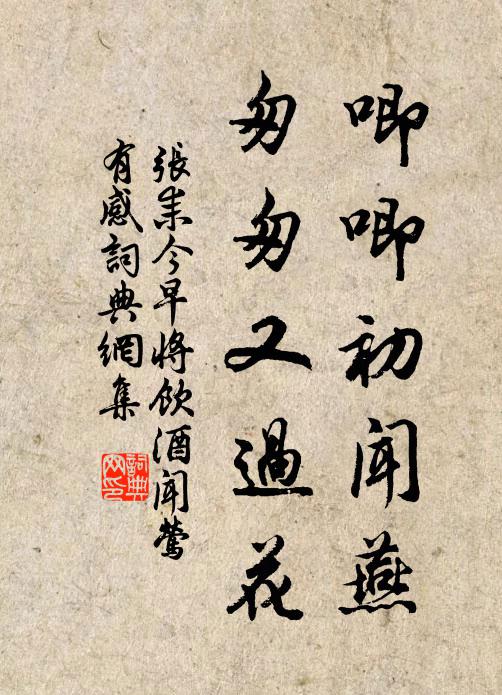 唧唧初闻燕
匆匆又過花
張耒今早將飲酒闻鶯
有感詞典網集
詞典
网印